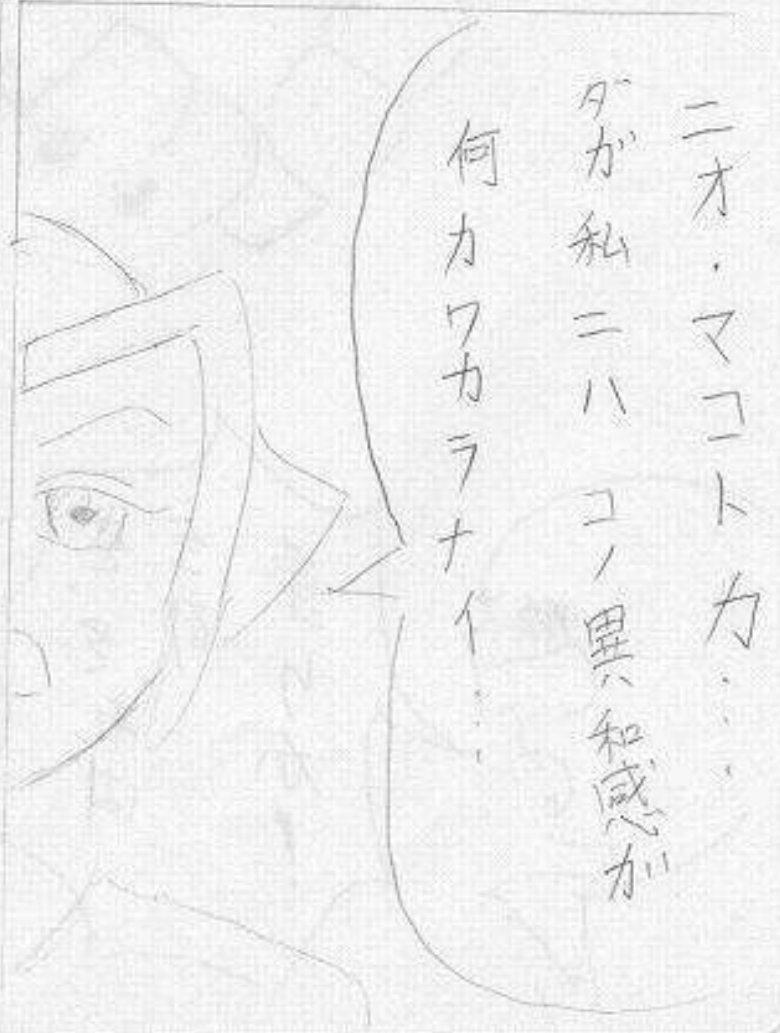 ニオ・マコトカ・・・
ダガ私ニハ コノ異和感ガ
何カワカラナイ・・・